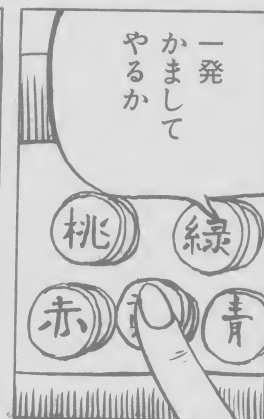 一発
かまして
やるか
桃
緑
赤
青